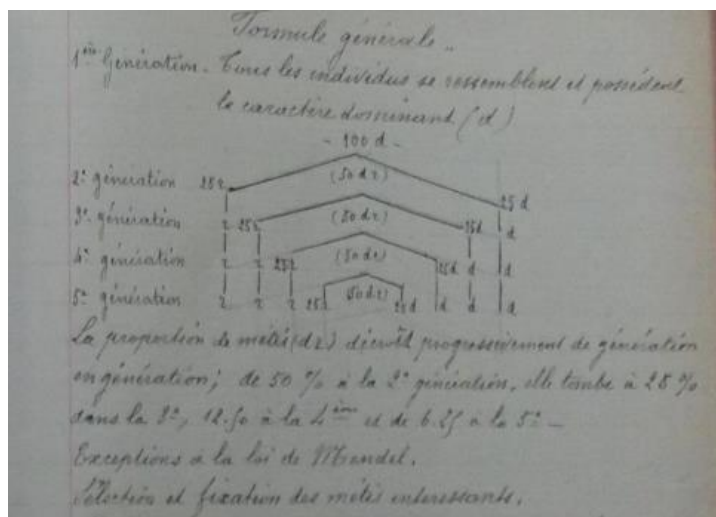 Formule générale..
1ère Génération. Tous les individus se ressemblent et possèdent
le caractère dominant (d)
- 100 d -
2e génération 25r (50 dr) 25 d
3e génération r 25r (50 dr) 25d d
4e génération r r 25r (50 dr) 25d d d
5e génération r r r 25r (50 dr) 25d d d d
La proportion de métis (dr) décroît progressivement de génération
en génération; de 50 % à la 2e génération, elle tombe à 25 %
dans la 3e, 12.50 à la 4ème et de 6.25 à la 5e -
Exceptions à la loi de Mendel.
Sélection et fixation des métis intéressants.